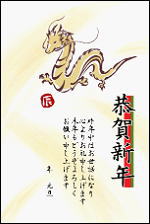 恭賀新年
昨年中はお世話になり
心よりお礼申し上げます
本年もどうぞよろしく
お願い申し上げます
年 元旦
辰